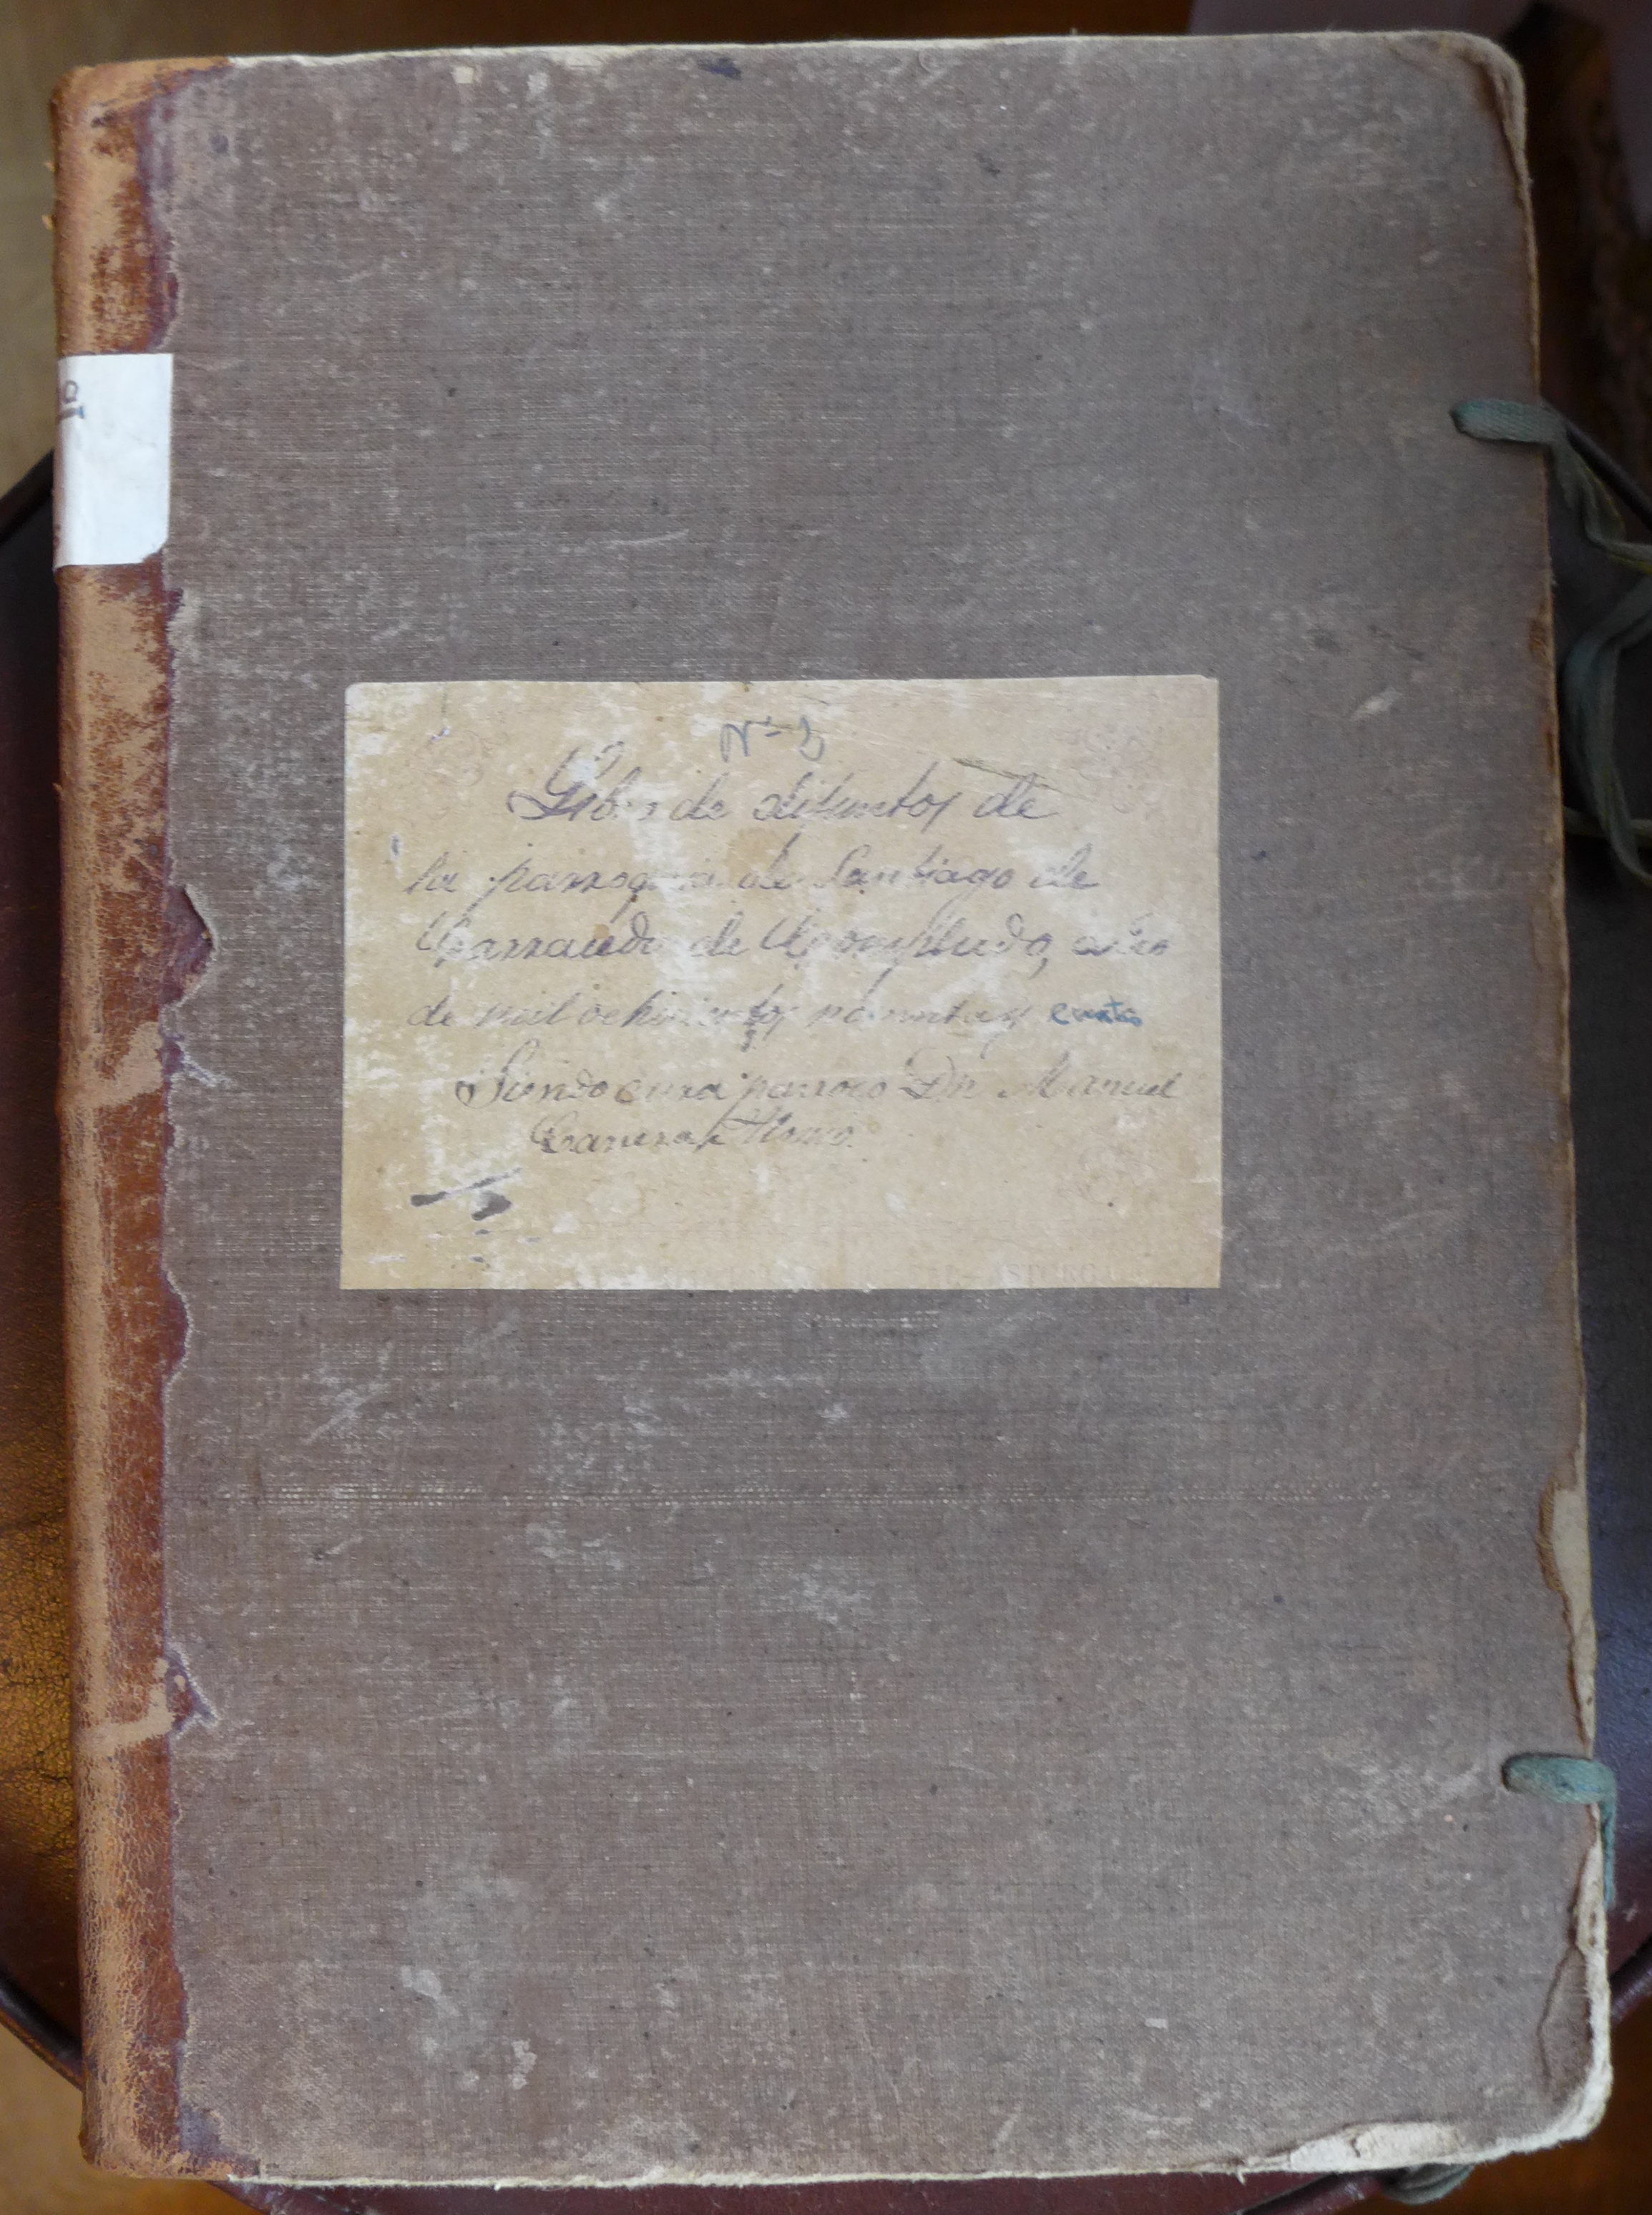 Nº 2
Libro de difuntos de
la parroquia de Santiago de
de Compludo, año
de mil ochocientos noventa y cuatro
Siendo cura parroco Dn Manuel
Carrera Alonso.